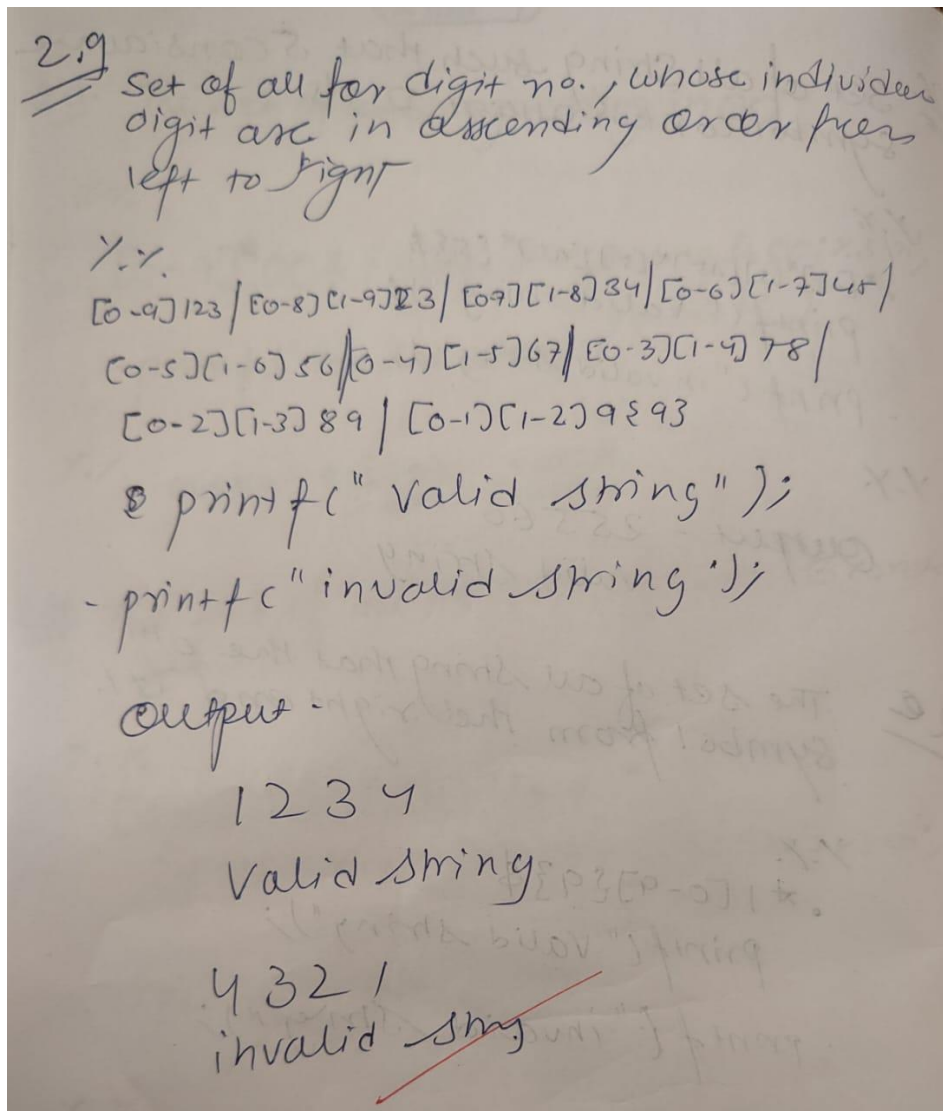 2.9
Set of all for digit no., whose individual
digit are in asscending order from
left to right
%.%.
[0-9]123|[0-8][1-9]23|[09][1-8]34|[0-6][1-7]45|
[0-5][1-6]56|[0-4][1-5]67|[0-3][1-4]78|
[0-2][1-3]89|[0-1][1-2]9{93
printf("Valid string");
- printf("invalid string");
output -
1234
Valid string
4321
invalid string